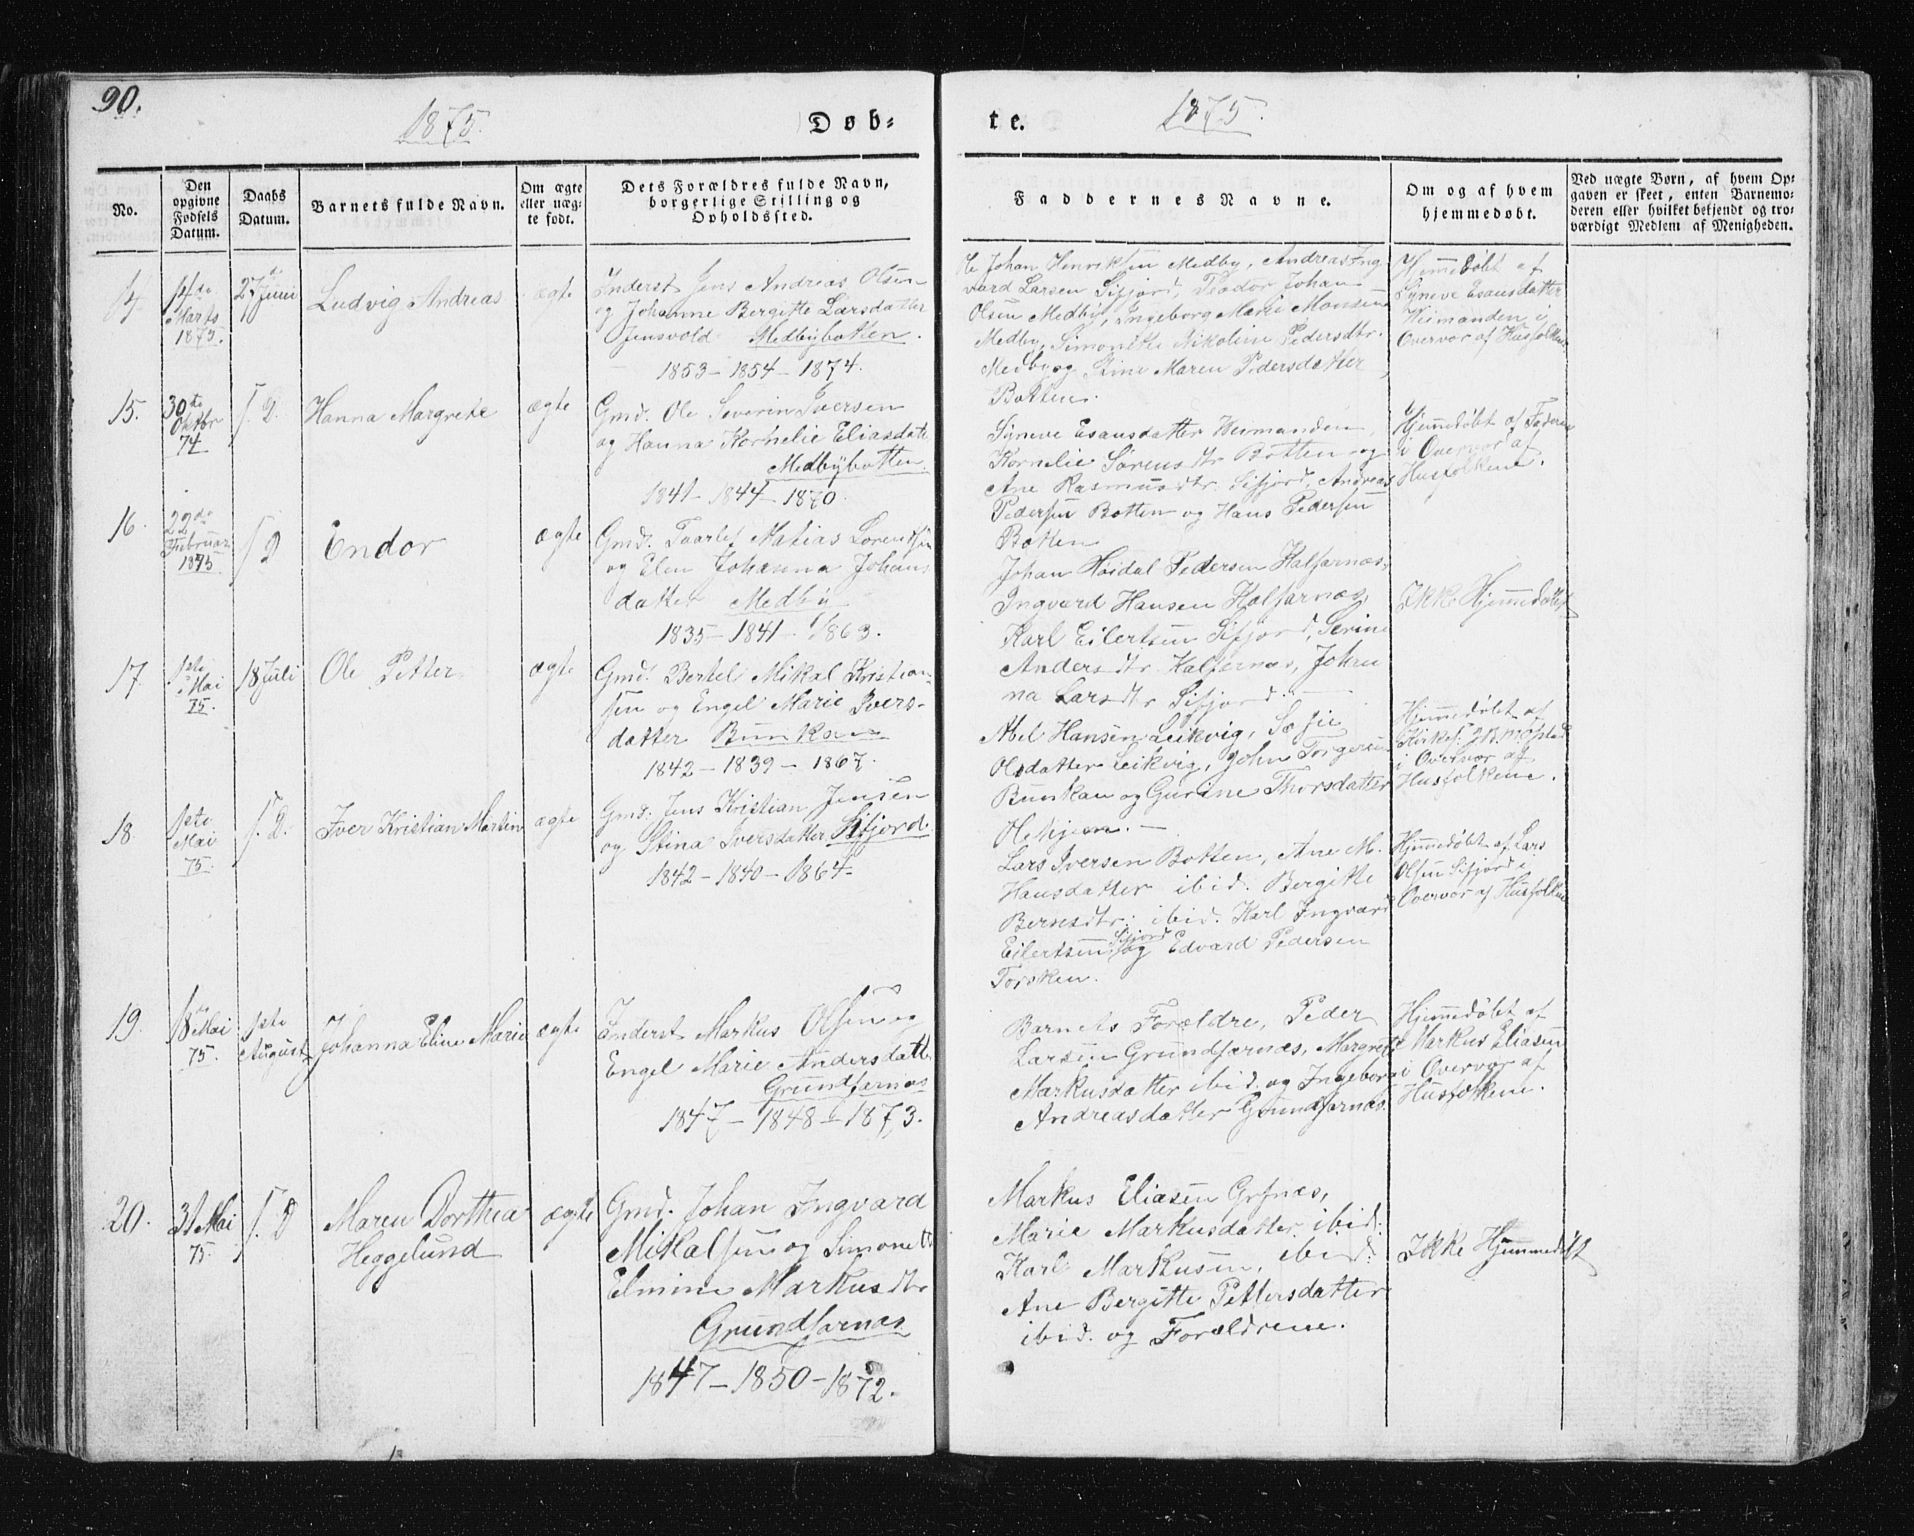 90.
1875.
Døb-
te.
1875.
No.
Den
opgivne
Fødsels
Datum.
Daabs
Datum.
Barnets fulde Navn.
Om ægte
eller uæg-
te født.
Dets Forældres fulde Navn,
borgerlige Stilling og
Opholdssted.
Faddernes Navne.
Om og af hvem
hjemmedøbt.
Ved uægte Børn, af hvem Op-
gaven er skeet, enten Barnemo-
deren eller hvilket bekjendt og tro-
værdigt Medlem af Menigheden.
14.
14de
Marts
1875.
27 Juni
Ludvig Andreas
ægte
Inderst Jens Andreas Olsen
og Johanne Bergitte Larsdatter
Jensvold Medbybotten.
1853 - 1854 - 1874.
Johan Henriksen Medby, Andreas Ing
vard Larsen Sifjord, Teodor Johan
Olsen Medby, Ingeborg Marie Monsen
Medby, Simonette Nikoline Pedersdtr.
Medby og Stine Maren Pedersdatter
Botten.
Hjemmedøbt af
Syneve Esausdatter
Heimanden i
Overvær af Husfolkene
15.
30te
Oktbr
74
S. D.
Hanna Margrete
ægte
Gmd. Ole Severin Iversen
og Hanna Kornelie Eliasdatt
Medbybotten.
1841 - 1844 - 1870.
Syneve Esausdatter Heimanden,
Kornelie Sørensdtr Botten og
Ane Rasmusdtr. Sifjord, Andreas
Pedersen Botten og Hans Pedersen
Botten
Hjemmedøbt af Faderen
i Overvær af
Husfolkene.
16.
22de
Februar
1875
S D
Endor
ægte
Gmd. Taarlef Matias Lorentsen
og Elen Johanna Johans
datter Medby
1835 - 1841 - 1863.
Johan Høidal Pedersen Kalfarnæs,
Ingvard Hansen Kalfarnæs,
Karl Eilertsen Sifjord, Serine
Andersdtr Kalfarnæs, Johan
na Larsdtr Sifjord. -
Ikke Hjemmedøbt
17.
1ste
Mai
75.
18 Juli
Ole Petter
ægte
Gmd. Bertel Mikal Kristian-
sen og Engel Marie Ivers-
datter Bunkan
1842 - 1839 - 1867.
Abel Hansen Leikvig, Sofie
Olsdatter Leikvig, John Torgersen
Bunkan og Gurine Thorsdatter
Olehjem. -
Hjemmedøbt af
Kirkes.
i Overvær af
Husfolkene.
18
1ste
Mai
75.
S. D.
Iver Kristian Martin
ægte
Gmd. Jens Kristian Jensen
og Stina Iversdatter Sifjord.
1842 - 1840 - 1864
Lars Iversen Botten, Ane M.
Hansdatter ibid. Bergitte
Berntsdtr. ibid. Karl Ingvard
Eilertsen Sifjord og Edvard Pedersen
Torsken.
Hjemmedøbt af Lars
Olsen Sifjord i
Overvær af Husfolkene
19.
18 Mai
75.
1ste
August
Johanna Eline Marie
ægte
Inderst Markus Olsen og
Engel Marie Andersdatt.
Grundfarnæs
1847 - 1848 - 1873.
Barnets Forældre, Peder
Larsen Grundfarnæs, Margrete
Markusdatter ibid. og Ingeborg
Andreasdatter Grundfarnæs.
Hjemmedøbt af
Markus Eliasen
i Overvær af
Husfolkene.
20.
31 Mai
75.
S. D
Maren Dorthea
Heggelund
ægte
Gmd. Johan Ingvard
Mikalsen og Simonette
Elmine Markusdtr
Grundfarnæs
1847 - 1850 - 1872.
Markus Eliasen Grfnæs,
Marie Markusdatter ibid.
Karl Markusen, ibid.
Ane Bergitte Pettersdatter
ibid. og Forældrene.
Ikke Hjemmedøbt